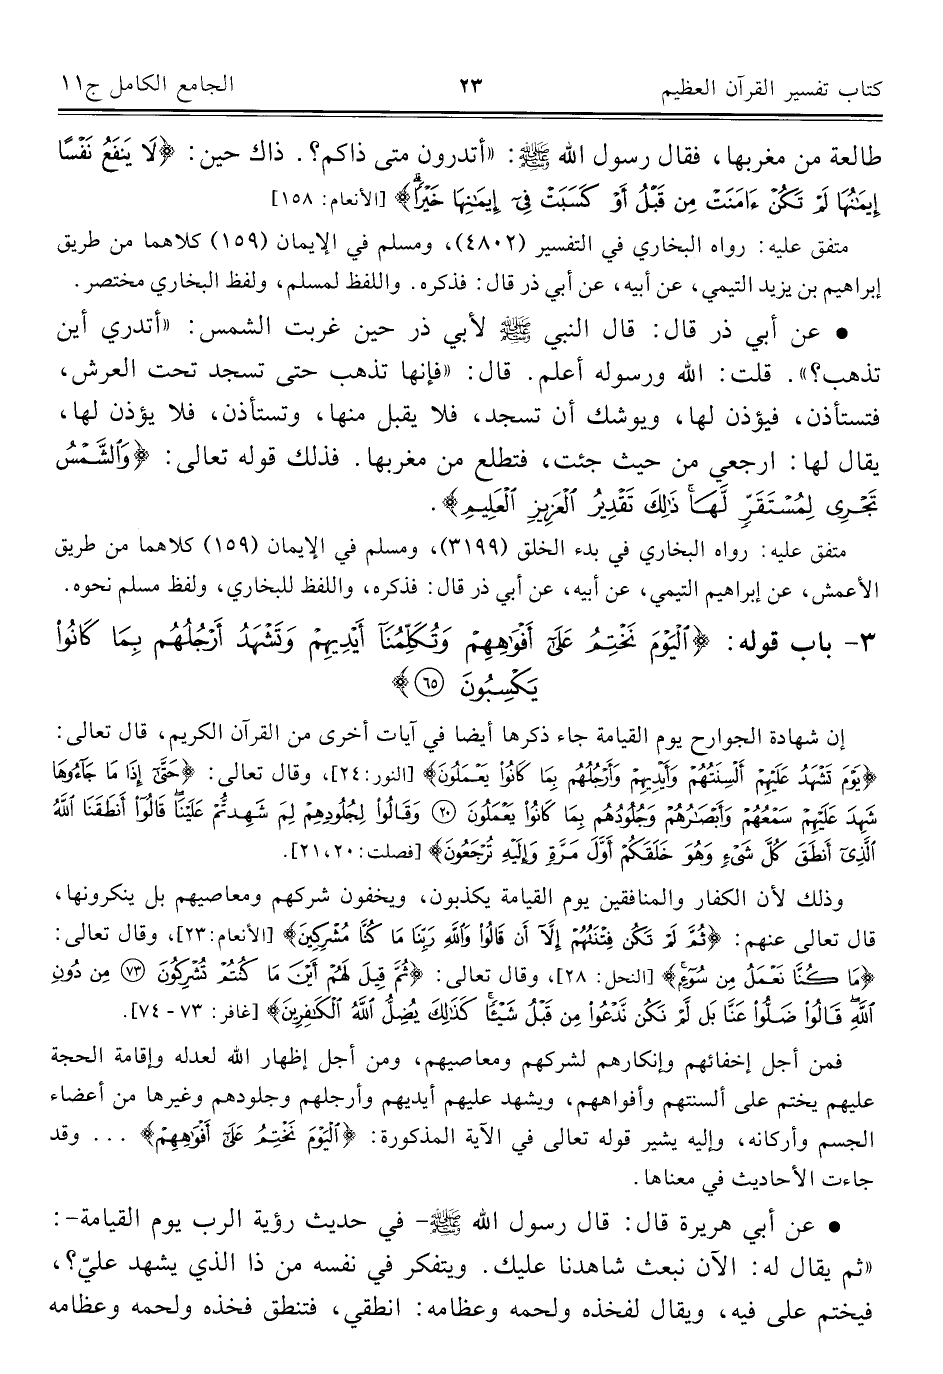 كتاب تفسير القرآن العظيم ٢٣ الجامع الكامل ج١١
طالعة من مغربها، فقال رسول الله ﷺ: «أتدرون متى ذاكم؟. ذاك حين: ﴿لَا يَنفَعُ نَفْسًا
إِيمَٰنُهَا لَمْ تَكُنْ ءَامَنَتْ مِن قَبْلُ أَوْ كَسَبَتْ فِىٓ إِيمَٰنِهَا خَيْرًاۗ﴾ [الأنعام: ١٥٨]
متفق عليه: رواه البخاري في التفسير (٤٨٠٢)، ومسلم في الإيمان (١٥٩) كلاهما من طريق
إبراهيم بن يزيد التيمي، عن أبيه، عن أبي ذر قال: فذكره. واللفظ لمسلم، ولفظ البخاري مختصر.
• عن أبي ذر قال: قال النبي ﷺ لأبي ذر حين غربت الشمس: «أتدري أين
تذهب؟». قلت: الله ورسوله أعلم. قال: «فإنها تذهب حتى تسجد تحت العرش،
فتستأذن، فيؤذن لها، ويوشك أن تسجد، فلا يقبل منها، وتستأذن، فلا يؤذن لها،
يقال لها: ارجعي من حيث جئت، فتطلع من مغربها. فذلك قوله تعالى: ﴿وَٱلشَّمْسُ
تَجْرِى لِمُسْتَقَرٍّ لَّهَاۚ ذَٰلِكَ تَقْدِيرُ ٱلْعَزِيزِ ٱلْعَلِيمِ﴾.
متفق عليه: رواه البخاري في بدء الخلق (٣١٩٩)، ومسلم في الإيمان (١٥٩) كلاهما من طريق
الأعمش، عن إبراهيم التيمي، عن أبيه، عن أبي ذر قال: فذكره، واللفظ للبخاري، ولفظ مسلم نحوه.
٣- باب قوله: ﴿ٱلْيَوْمَ نَخْتِمُ عَلَىٰٓ أَفْوَٰهِهِمْ وَتُكَلِّمُنَآ أَيْدِيهِمْ وَتَشْهَدُ أَرْجُلُهُم بِمَا كَانُوا۟
يَكْسِبُونَ ٦٥﴾
إن شهادة الجوارح يوم القيامة جاء ذكرها أيضا في آيات أخرى من القرآن الكريم، قال تعالى:
﴿يَوْمَ تَشْهَدُ عَلَيْهِمْ أَلْسِنَتُهُمْ وَأَيْدِيهِمْ وَأَرْجُلُهُم بِمَا كَانُوا۟ يَعْمَلُونَ﴾ [النور:٢٤]، وقال تعالى: ﴿حَتَّىٰٓ إِذَا مَا جَآءُوهَا
شَهِدَ عَلَيْهِمْ سَمْعُهُمْ وَأَبْصَٰرُهُمْ وَجُلُودُهُم بِمَا كَانُوا۟ يَعْمَلُونَ ٢٠ وَقَالُوا۟ لِجُلُودِهِمْ لِمَ شَهِدتُّمْ عَلَيْنَاۖ قَالُوٓا۟ أَنطَقَنَا ٱللَّهُ
ٱلَّذِىٓ أَنطَقَ كُلَّ شَىْءٍ وَهُوَ خَلَقَكُمْ أَوَّلَ مَرَّةٍ وَإِلَيْهِ تُرْجَعُونَ﴾ [فصلت:٢١،٢٠].
وذلك لأن الكفار والمنافقين يوم القيامة يكذبون، ويخفون شركهم ومعاصيهم بل ينكرونها،
قال تعالى عنهم: ﴿ثُمَّ لَمْ تَكُن فِتْنَتُهُمْ إِلَّآ أَن قَالُوا۟ وَٱللَّهِ رَبِّنَا مَا كُنَّا مُشْرِكِينَ﴾ [الأنعام:٢٣]، وقال تعالى:
﴿مَا كُنَّا نَعْمَلُ مِن سُوٓءٍۚ﴾ [النحل: ٢٨]، وقال تعالى: ﴿ثُمَّ قِيلَ لَهُمْ أَيْنَ مَا كُنتُمْ تُشْرِكُونَ ٧٣ مِن دُونِ
ٱللَّهِۖ قَالُوا۟ ضَلُّوا۟ عَنَّا بَل لَّمْ نَكُن نَّدْعُوا۟ مِن قَبْلُ شَيْـًٔاۚ كَذَٰلِكَ يُضِلُّ ٱللَّهُ ٱلْكَٰفِرِينَ﴾ [غافر: ٧٣ - ٧٤].
فمن أجل إخفائهم وإنكارهم لشركهم ومعاصيهم، ومن أجل إظهار الله لعدله وإقامة الحجة
عليهم يختم على ألسنتهم وأفواههم، ويشهد عليهم أيديهم وأرجلهم وجلودهم وغيرها من أعضاء
الجسم وأركانه، وإليه يشير قوله تعالى في الآية المذكورة: ﴿ٱلْيَوْمَ نَخْتِمُ عَلَىٰٓ أَفْوَٰهِهِمْ﴾ ... وقد
جاءت الأحاديث في معناها.
• عن أبي هريرة قال: قال رسول الله ﷺ- في حديث رؤية الرب يوم القيامة-:
«ثم يقال له: الآن نبعث شاهدنا عليك. ويتفكر في نفسه من ذا الذي يشهد عليّ؟،
فيختم على فيه، ويقال لفخذه ولحمه وعظامه: انطقي، فتنطق فخذه ولحمه وعظامه